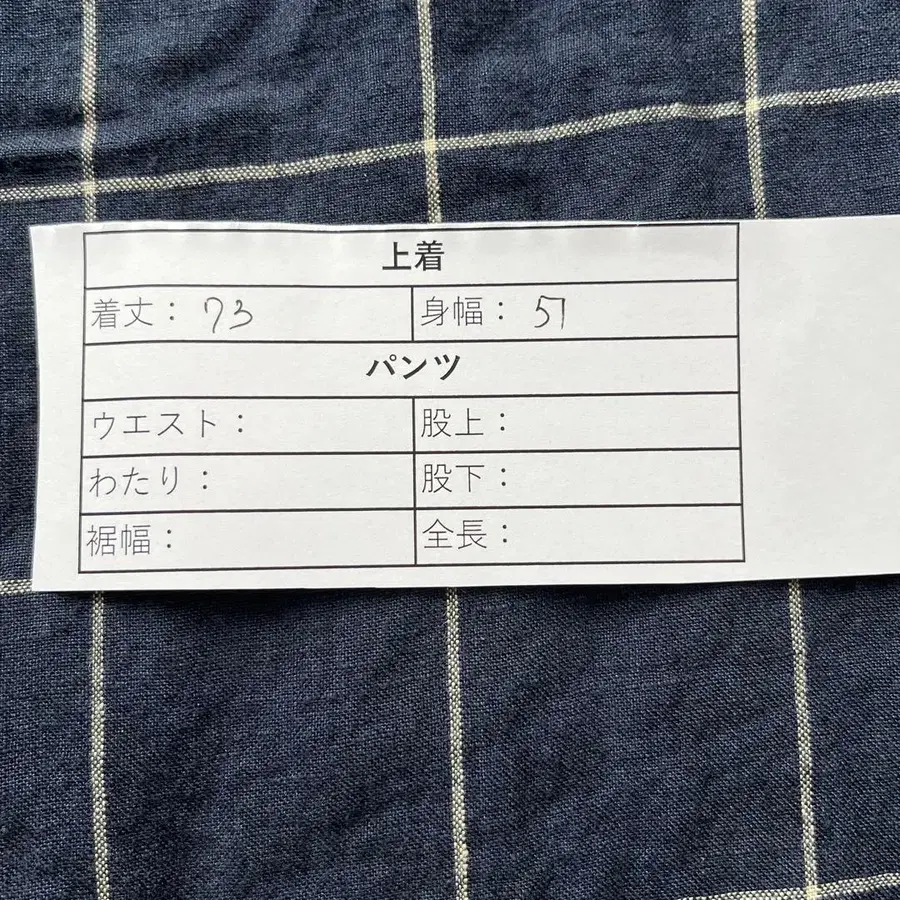 上着
着丈： 73 身幅： 57
パンツ
ウエスト： 股上：
わたり： 股下：
裾幅： 全長：